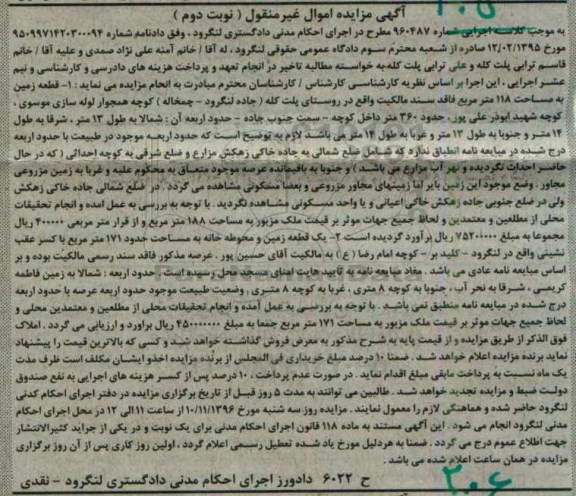 ۲۰۵
آگهی مزایده اموال غیرمنقول ( نوبت دوم )
به موجب کلاسه اجرایی شماره ۹۶۰۴۸۷ مطرح در اجرای احکام مدنی دادگستری لنگرود ، وفق دادنامه شماره ۹۵۰۹۹۷۱۴۲۰۳۰۰۰۹۴
مورخ ۱۲/۰۲/۱۳۹۵ صادره از شعبه محترم سوم دادگاه عمومی حقوقی لنگرود ، له آقا / خانم آمنه علی نژاد صمدی و علیه آقا / خانم
قاسم ترابی پلت کله و علی ترابی پلت کله به خواسته مطالبه تاخیر در انجام تعهد و پرداخت هزینه های دادرسی و کارشناسی و نیم
عشر اجرایی ، این اجرا بر اساس نظریه کارشناسی کارشناس / کارشناسان محترم مبادرت به انجام مزایده می نماید : ۱- قطعه زمین
به مساحت ۱۱۸ متر مربع فاقد سند مالکیت واقع در روستای پلت کله ( جاده لنگرود - چمخاله ) کوچه همجوار لوله سازی موسوی ،
کوچه شهید ابوذر علی پور، حدود ۳۶۰ متر داخل کوچه - سمت جنوب جاده - حدود اربعه آن : شمالا به طول ۱۳ متر ، شرقا به طول
۱۴ متر و جنوبا به طول ۱۳ متر و غربا به طول ۱۴ متر می باشد. لازم به توضیح است که حدود اربعه موجود در طبیعت با حدود اربعه
درج شده در مبایعه نامه انطباق ندارد که شامل ضلع شمالی به جاده خاکی زهکش مزارع و ضلع شرقی به کوچه احداثی ( که در حال
حاضر احداث نگردیده و نهر آب مزارع می باشد ) و جنوبا به باقیمانده عرصه موجود متعلق به محکوم علیه و غربا به زمین مزروعی
مجاور . وضع موجود این زمین بایر اما زمینهای مجاور مزروعی و بعضا مسکونی مشاهده می گردد . در ضلع شمالی جاده خاکی زهکش
ولی در ضلع جنوبی جاده زهکش خاکی اعیانی و یا واحد مسکونی مشاهده نگردید . با توجه به بررسی به عمل امده و انجام تحقیقات
محلی از مطلعین و معتمدین و لحاظ جمیع جهات موثر بر قیمت ملک مزبور به مساحت ۱۸۸ متر مربع و از قرار متر مربعی ۴۰۰۰۰۰ ریال
مجموعا به مبلغ ۷۵۲۰۰۰۰۰ ریال برآورد گردیده است ۲- یک قطعه زمین و محوطه خانه به مساحت حدود ۱۷۱ متر مربع با کسر عقب
نشینی واقع در لنگرود - کلید بر - کوچه امام رضا ( ع ) به مالکیت آقای حسین پور . عرصه مذکور فاقد سند رسمی مالکیت بوده و بر
اساس مبایعه نامه عادی می باشد . مفاد مبایعه نامه به تایید هایت امنای مسجد محل رسیده است . حدود اربعه : شمالا به زمین فاطمه
کریمی ، شرقا به نحر آب ، جنوبا به کوچه ۸ متری ، غربا به کوچه ۸ متری . وضعیت طبیعت موجود حدود اربعه عرصه با حدود اربعه
درج شده در مبایعه نامه منطبق نمی باشد . با توجه به بررسی به عمل آمده و انجام تحقیقات محلی از مطلعین و معتمدین محلی و
لحاظ جمیع جهات موثر بر قیمت ملک مزبور به مساحت ۱۷۱ متر مربع جمعا به مبلغ ۴۵۰۰۰۰۰۰۰ ریال براورد و ارزیابی می گردد . املاک
فوق الذکر از طریق مزایده و از قیمت پایه به شرح مذکور به معرض فروش گذاشته خواهد شد و کسی که بالاترین قیمت را پیشنهاد
نماید برنده مزایده اعلام خواهد شد . ضمنا ۱۰ درصد مبلغ خریداری فی المجلس از برنده مزایده اخذ و ایشان مکلف است ظرف مدت
یک ماه نسبت به پرداخت مابقی مبلغ اقدام نماید . در صورت عدم پرداخت ، ۱۰ درصد پس از کسر هزینه های اجرایی به نفع صندوق
دولت ضبط و مزایده تجدید خواهد شد . طالبین می توانند به مدت ۵ روز قبل از تاریخ برگزاری مزایده در دفتر اجرای احکام مدنی
لنگرود حاضر شده و هماهنگی لازم را معمول نمایند . مزایده روز سه شنبه مورخ ۱۰/۱۱/۱۳۹۶ از ساعت ۱۱ الی ۱۲ در محل اجرای احکام
مدنی لنگرود انجام می شود . این آگهی مستند به ماده ۱۱۸ قانون اجرای احکام مدنی برای یک نوبت و در یکی از جراید کثیرالانتشار
جهت اطلاع عموم درج می گردد . ضمنا به هر دلیل مورخ یاد شده تعطیل رسمی اعلام گردد ، اولین روز کاری پس از آن روز برگزاری
مزایده در همان ساعت اعلام شده می باشد .
ح ۶۰۲۲ دادورز اجرای احکام مدنی دادگستری لنگرود - نقدی
۳۰۶